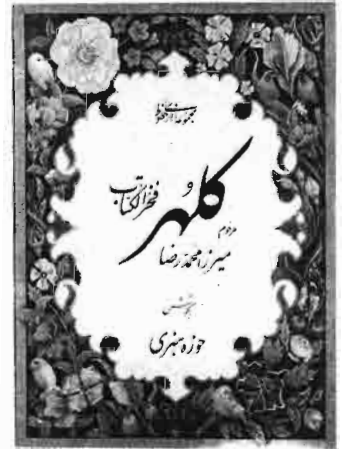 مجموعه‌ای از خطوط
کلهر و فخرالکتاب
مرحوم
میرزا محمد رضا
بکوشش
حوزه هنری